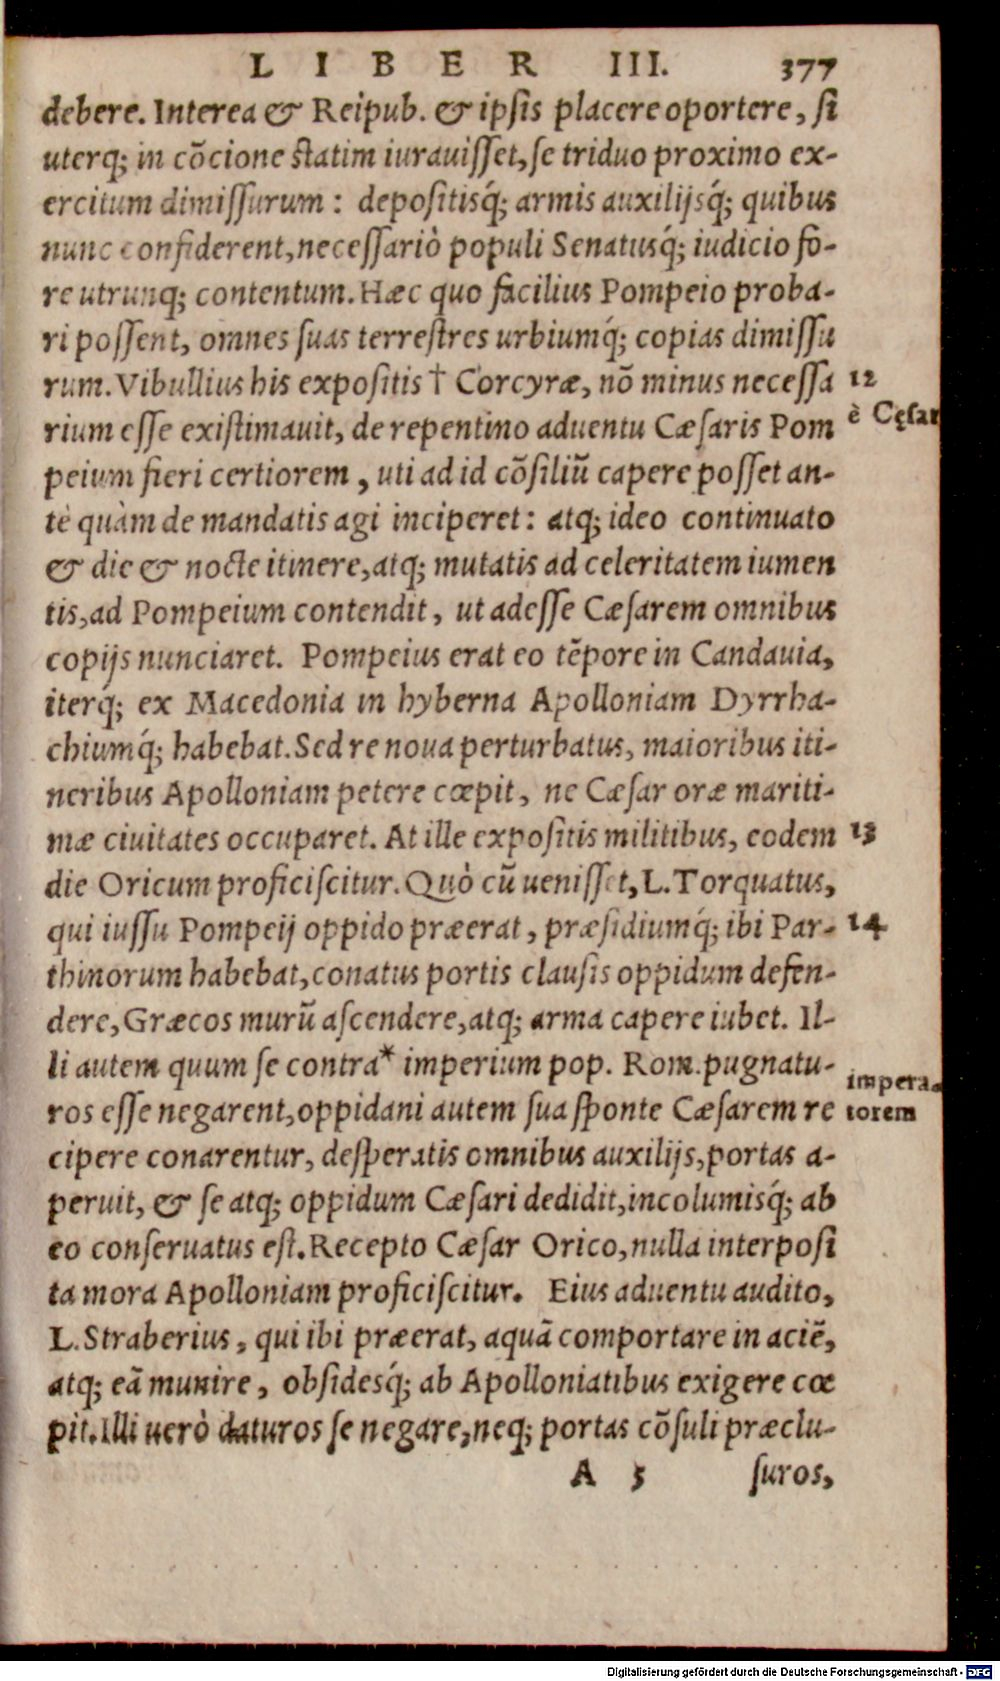 LIBER III. 377
debere. Interea & Reipub. & ipſis placere oportere, ſi
uterq; in cõcione ſtatim iurauiſſet, ſe triduo proximo ex-
ercitum dimiſſurum : depoſitisq́; armis auxilijsq́; quibus
nunc confiderent, neceſſariò populi Senatusq́; iudicio fo-
re utrunq; contentum. Hæc quo facilius Pompeio proba-
ri poſſent, omnes ſuas terreſtres urbiumq́; copias dimiſſu
rum. Vibullius his expoſitis † Corcyræ, nõ minus neceſſa 12
rium eſſe exiſtimauit, de repentino aduentu Cæſaris Pom è Cęſar
peium fieri certiorem , uti ad id cõſiliũ capere poſſet an-
tè quàm de mandatis agi inciperet : atq; ideo continuato
& die & nocte itinere, atq; mutatis ad celeritatem iumen
tis, ad Pompeium contendit , ut adeſſe Cæſarem omnibus
copijs nunciaret. Pompeius erat eo tẽpore in Candauia,
iterq́; ex Macedonia in hyberna Apolloniam Dyrrha-
chiumq́; habebat. Sed re noua perturbatus, maioribus iti-
neribus Apolloniam petere cœpit, ne Cæſar oræ mariti-
mæ ciuitates occuparet. At ille expoſitis militibus, eodem 13
die Oricum proficiſcitur. Quò cũ ueniſſet, L. Torquatus,
qui iuſſu Pompeij oppido præerat , præſidiumq́; ibi Par- 14
thinorum habebat, conatus portis clauſis oppidum defen-
dere, Græcos murũ aſcendere, atq; arma capere iubet. Il-
li autem quum ſe contra* imperium pop. Rom. pugnatu- impera-
ros eſſe negarent, oppidani autem ſua ſponte Cæſarem re torem
cipere conarentur, deſperatis omnibus auxilijs, portas a-
peruit, & ſe atq; oppidum Cæſari dedidit, incolumisq́; ab
eo conſeruatus eſt. Recepto Cæſar Orico, nulla interpoſi
ta mora Apolloniam proficiſcitur. Eius aduentu audito,
L. Straberius , qui ibi præerat, aquã comportare in aciẽ,
atq; eã munire , obſidesq́; ab Apolloniatibus exigere cœ
pit. Illi uerò daturos ſe negare, neq; portas cõſuli præclu-
A 5 ſuros,
Digitalisierung gefördert durch die Deutsche Forschungsgemeinschaft - DFG